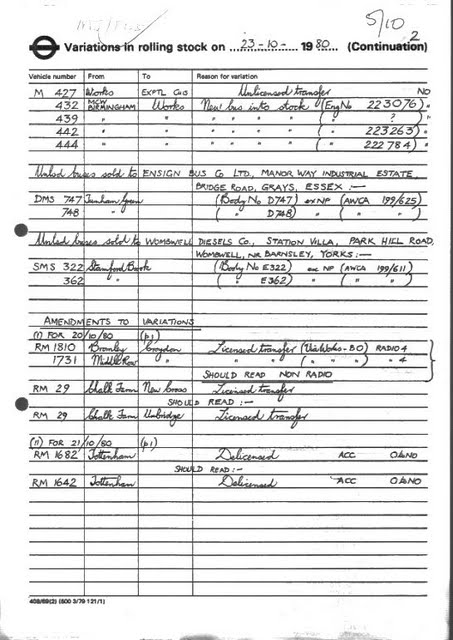 5/10
2
Variations in rolling stock on 23-10- 1980 (Continuation)
Vehicle number From To Reason for variation
M 427 Works EXPTL CIS Unlicensed transfer NO
432 MCW BIRMINGHAM Works New bus into stock (Eng No 223076) "
439 " " " " " ( " ? ) "
442 " " " " " ( " 223263) "
444 " " " " " ( " 222784) "
Unlsd buses sold to ENSIGN BUS CO LTD., MANOR WAY INDUSTRIAL ESTATE,
BRIDGE ROAD, GRAYS, ESSEX :—
DMS 747 Turnham Green (Body No D747) ex NP (AWCA 199/625)
748 " ( " D748) " ( " " )
Unlsd buses sold to WOMBWELL DIESELS CO., STATION VILLA, PARK HILL ROAD,
WOMBWELL, NR BARNSLEY, YORKS :—
SMS 322 Stamford Brook (Body No E322) ex NP (AWCA 199/611)
362 " ( " E362) " ( " " )
AMENDMENTS TO VARIATIONS
(I) FOR 20/10/80 (p1)
RM 1810 Bromley Croydon Licensed transfer (Via Works - BO) RADIO 4
1731 Middle Row " " " ( " " " ) " 4
SHOULD READ NON RADIO
RM 29 Chalk Farm New Cross Licensed transfer
SHOULD READ :—
RM 29 Chalk Farm Uxbridge Licensed transfer
(II) FOR 21/10/80 (p1)
RM 1682 Tottenham Delicensed ACC O/NO
SHOULD READ :—
RM 1642 Tottenham Delicensed ACC O/NO
408/69(2) (500 3/79 121/1)